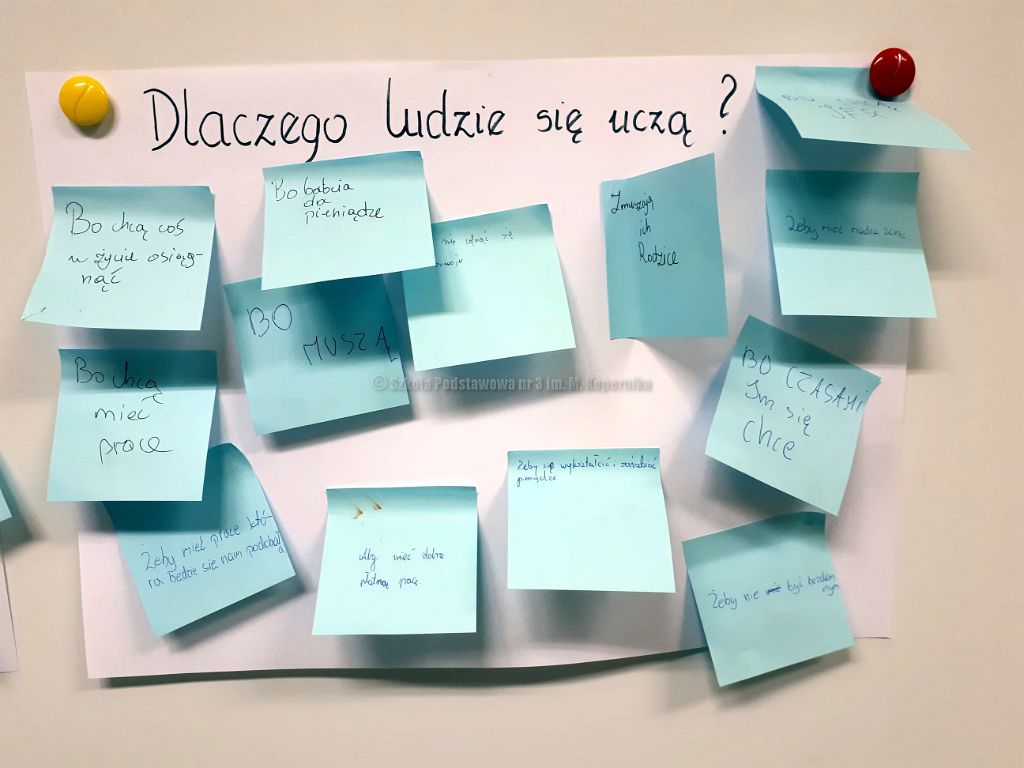 Dlaczego ludzie się uczą ?
Bo chcą coś
w życiu osiąg-
nąć
Bo babcia
da
pieniądze
nie
się
Zmuszają
ich
Rodzice
Żeby mieć
BO
MUSZĄ
Bo chcą
mieć
prace
BO CZASAMI
Im się
chce
Żeby mieć prace któ-
ra będzie się nam podobał
a
Aby mieć dobrą
płatną pracę.
Żeby się wykształcić i zarabiać
pieniądze
Żeby nie być bezdom
nym
© Szkoła Podstawowa nr 3 im. M. Kopernika